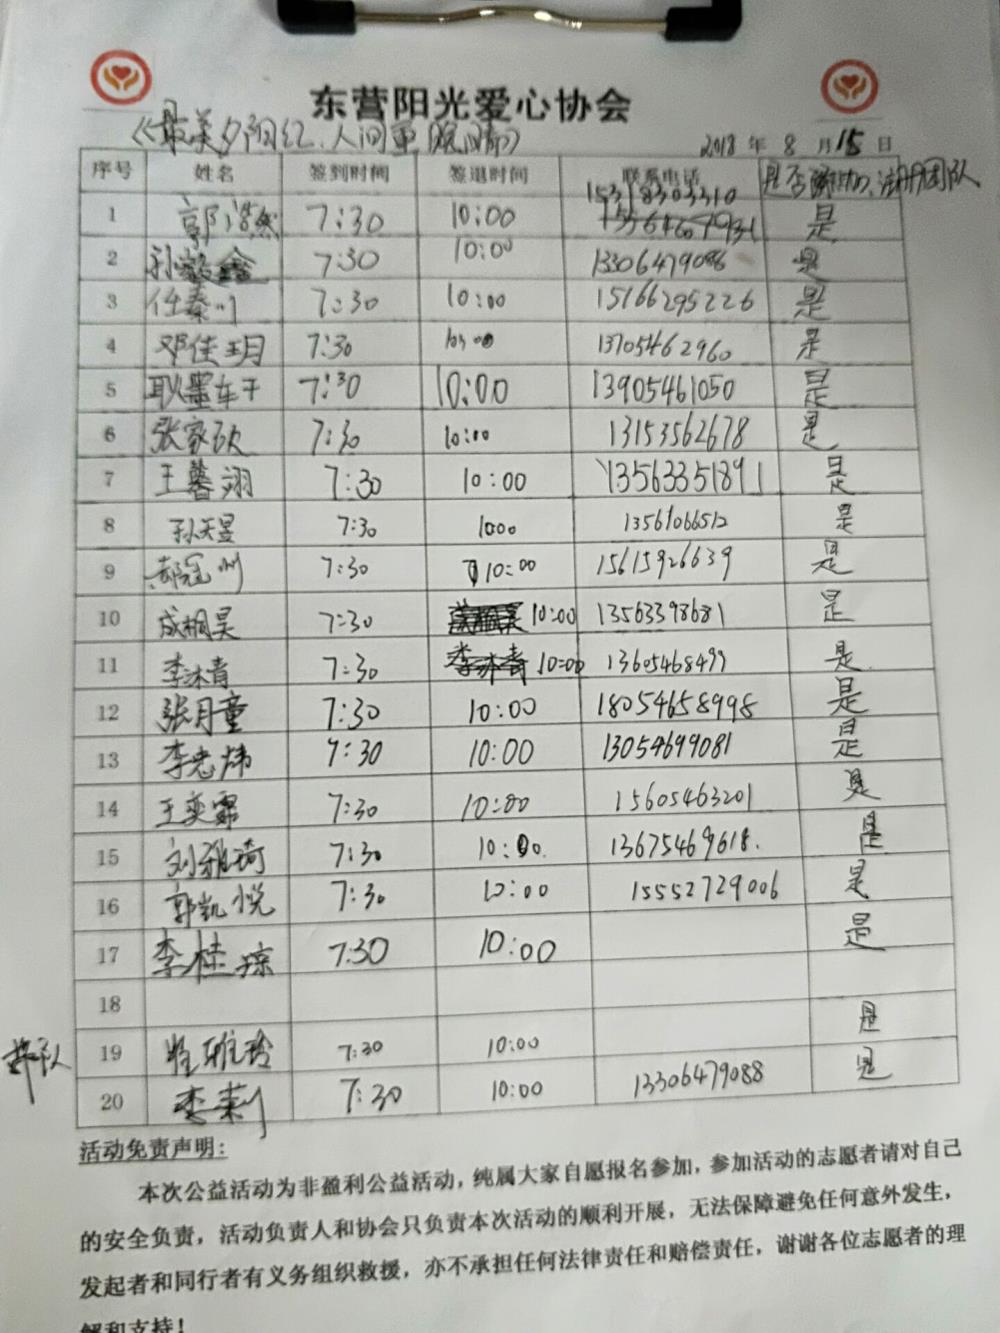 东营阳光爱心协会
《最美夕阳红、人间重晚晴》 2018 年 8 月 15 日
序号 姓名 签到时间 签退时间 联系电话 是否 注册团队
15318303310
1 郭浩然 7:30 10:00 是
2 孙毅鑫 7:30 10:00 13306479086 是
3 任秦川 7:30 10:00 15166295226 是
4 邓佳玥 7:30 10:00 13705462960 是
5 耿墨轩 7:30 10:00 13905461050 是
6 张家欣 7:30 10:00 13153562678 是
7 王馨翊 7:30 10:00 13563351891 是
8 孙天昱 7:30 1000 13561066512 是
9 郝冠州 7:30 10:00 15615926639 是
10 成桐昊 7:30 10:00 13563398681 是
11 李沐青 7:30 10:00 13605468499 是
12 张月童 7:30 10:00 18054658998 是
13 李忠炜 7:30 10:00 13054699081 是
14 王奕霏 7:30 10:00 15605463201 是
15 刘雅琦 7:30 10:00. 13675469618. 是
16 郭凯悦 7:30 10:00 15552729006 是
17 李桂琼 7:30 10:00 是
18
19 雅玲 7:30 10:00 是
20 李莉 7:30 10:00 13306479088 是
活动免责声明：
本次公益活动为非盈利公益活动，纯属大家自愿报名参加，参加活动的志愿者请对自己
的安全负责，活动负责人和协会只负责本次活动的顺利开展，无法保障避免任何意外发生，
发起者和同行者有义务组织救援，亦不承担任何法律责任和赔偿责任，谢谢各位志愿者的理
解和支持！